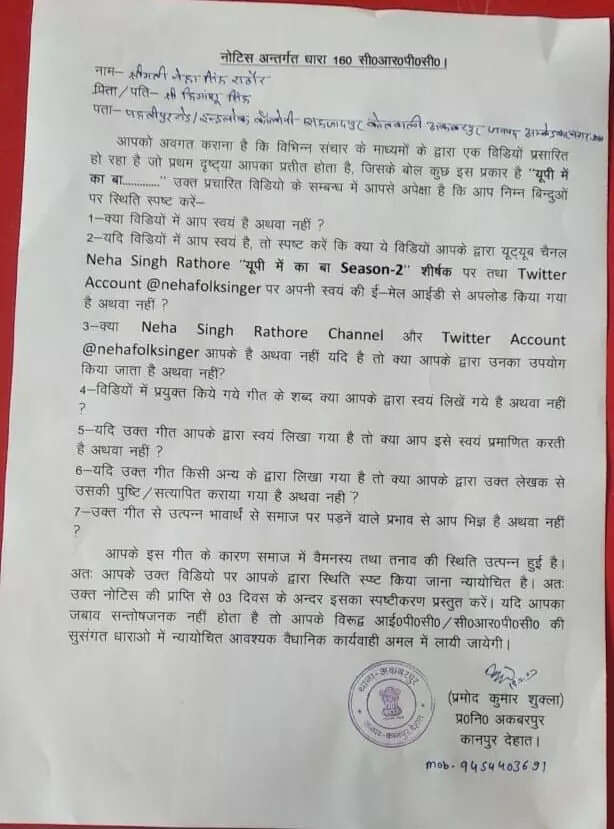 नोटिस अन्तर्गत धारा 160 सी0आर0पी0सी0।
नाम– श्रीमती नेहा सिंह राठौर
पिता/पति– श्री हिमांशु सिंह
पता– कॉलोनी अकबरपुर जनपद अम्बेडकरनगर
आपको अवगत कराना है कि विभिन्न संचार के माध्यमों के द्वारा एक विडियों प्रसारित
हो रहा है जो प्रथम दृष्ट्या आपका प्रतीत होता है, जिसके बोल कुछ इस प्रकार है "यूपी में
का बा............." उक्त प्रचारित विडियो के सम्बन्ध में आपसे अपेक्षा है कि आप निम्न बिन्दुओं
पर स्थिति स्पष्ट करें–
1–क्या विडियों में आप स्वयं है अथवा नहीं ?
2–यदि विडियों में आप स्वयं है, तो स्पष्ट करें कि क्या ये विडियों आपके द्वारा यूट्यूब चैनल
Neha Singh Rathore "यूपी में का बा Season-2" शीर्षक पर तथा Twitter
Account @nehafolksinger पर अपनी स्वयं की ई–मेल आईडी से अपलोड किया गया
है अथवा नहीं ?
3–क्या Neha Singh Rathore Channel और Twitter Account
@nehafolksinger आपके है अथवा नहीं यदि है तो क्या आपके द्वारा उनका उपयोग
किया जाता है अथवा नहीं?
4–विडियों में प्रयुक्त किये गये गीत के शब्द क्या आपके द्वारा स्वयं लिखें गये है अथवा नहीं
?
5–यदि उक्त गीत आपके द्वारा स्वयं लिखा गया है तो क्या आप इसे स्वयं प्रमाणित करती
है अथवा नहीं ?
6–यदि उक्त गीत किसी अन्य के द्वारा लिखा गया है तो क्या आपके द्वारा उक्त लेखक से
उसकी पुष्टि/सत्यापित कराया गया है अथवा नही ?
7–उक्त गीत से उत्पन्न भावार्थ से समाज पर पड़नें वाले प्रभाव से आप भिज्ञ है अथवा नहीं
?
आपके इस गीत के कारण समाज में वैमनस्य तथा तनाव की स्थिति उत्पन्न हुई है।
अतः आपके उक्त विडियो पर आपके द्वारा स्थिति स्पष्ट किया जाना न्यायोचित है। अतः
उक्त नोटिस की प्राप्ति से 03 दिवस के अन्दर इसका स्पष्टीकरण प्रस्तुत करें। यदि आपका
जबाव सन्तोषजनक नहीं होता है तो आपके विरूद्व आई0पी0सी0/सी0आर0पी0सी0 की
सुसंगत धाराओ में न्यायोचित आवश्यक वैधानिक कार्यवाही अमल में लायी जायेगी।
थाना-अकबरपुर
कानपुर देहात
(प्रमोद कुमार शुक्ला)
प्र0नि0 अकबरपुर
कानपुर देहात।
mob- 9454403691